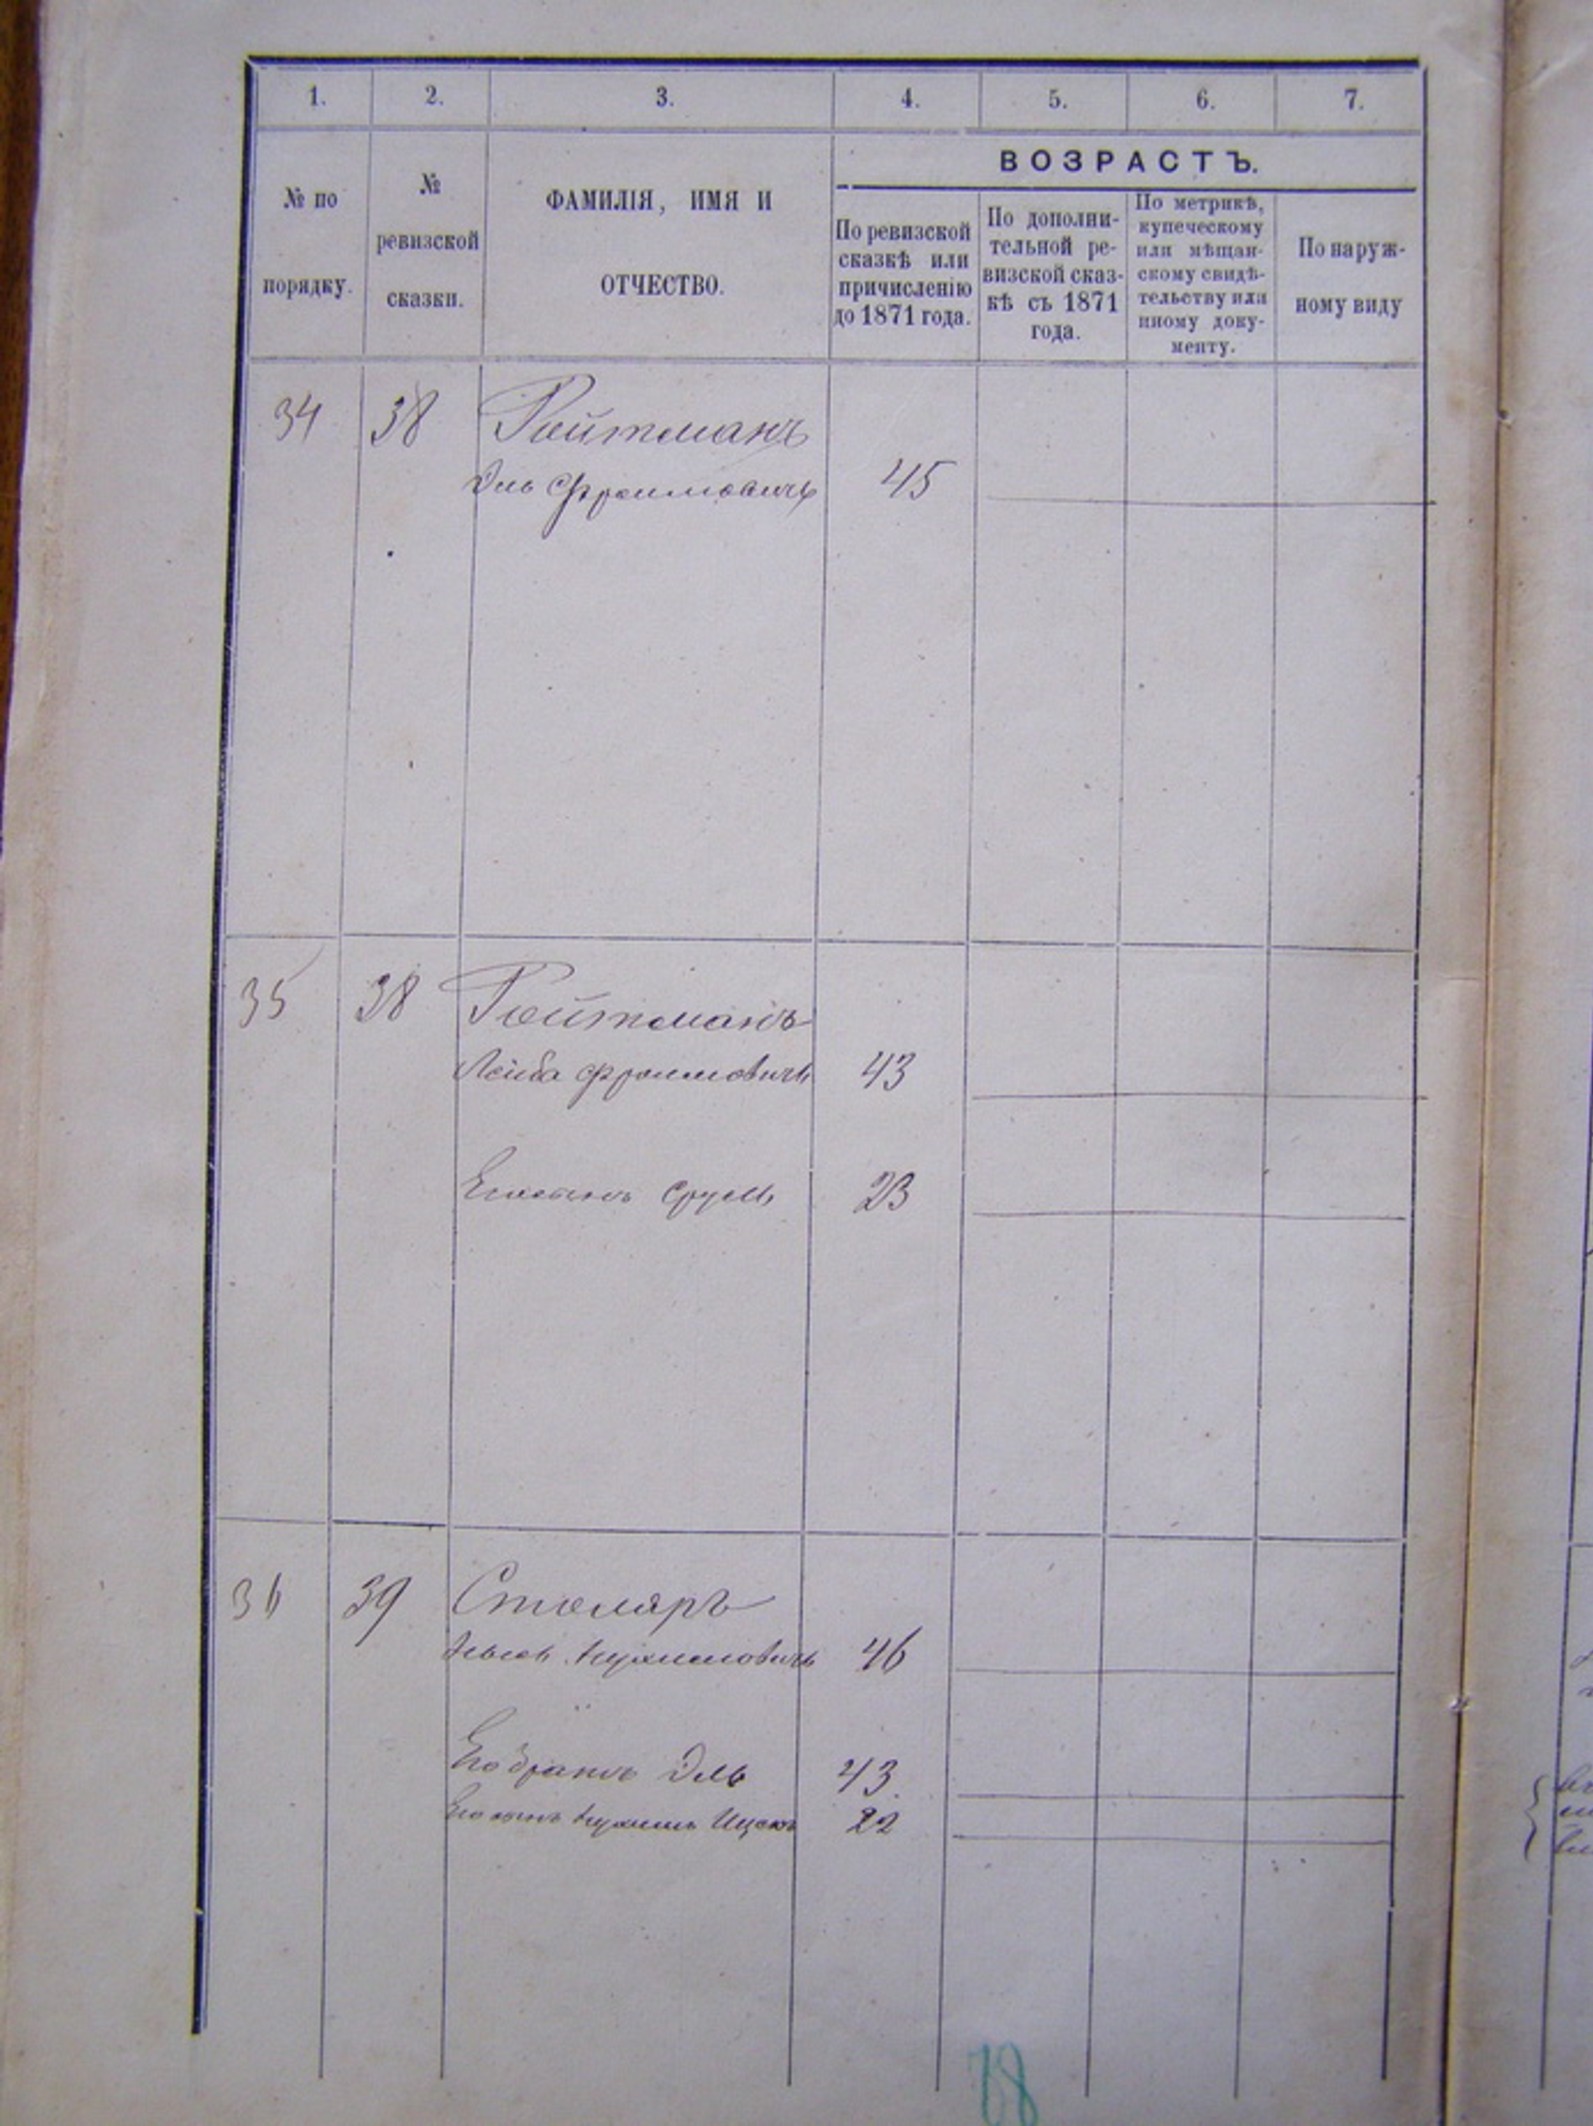 1. 2. 3. 4. 5. 6. 7.
№ по
порядку.
№
ревизской
сказки.
ФАМИЛІЯ, ИМЯ И
ОТЧЕСТВО.
ВОЗРАСТЪ.
По ревизской
сказкѣ или
причисленію
до 1871 года.
По дополни-
тельной ре-
визской сказ-
кѣ съ 1871
года.
По метрикѣ,
купеческому
или мѣщан-
скому свидѣ-
тельству или
иному доку-
менту.
По наруж-
ному виду
34 38 Ройтманъ
Эль Фроимовичъ 45
35 38 Ройтманъ
Лейба Фроимовичъ 43
Его сынъ Сруль 23
36 39 Столяръ
46
Его братъ Эль 43.
Его сынъ Нухимъ Ицекъ 22
78